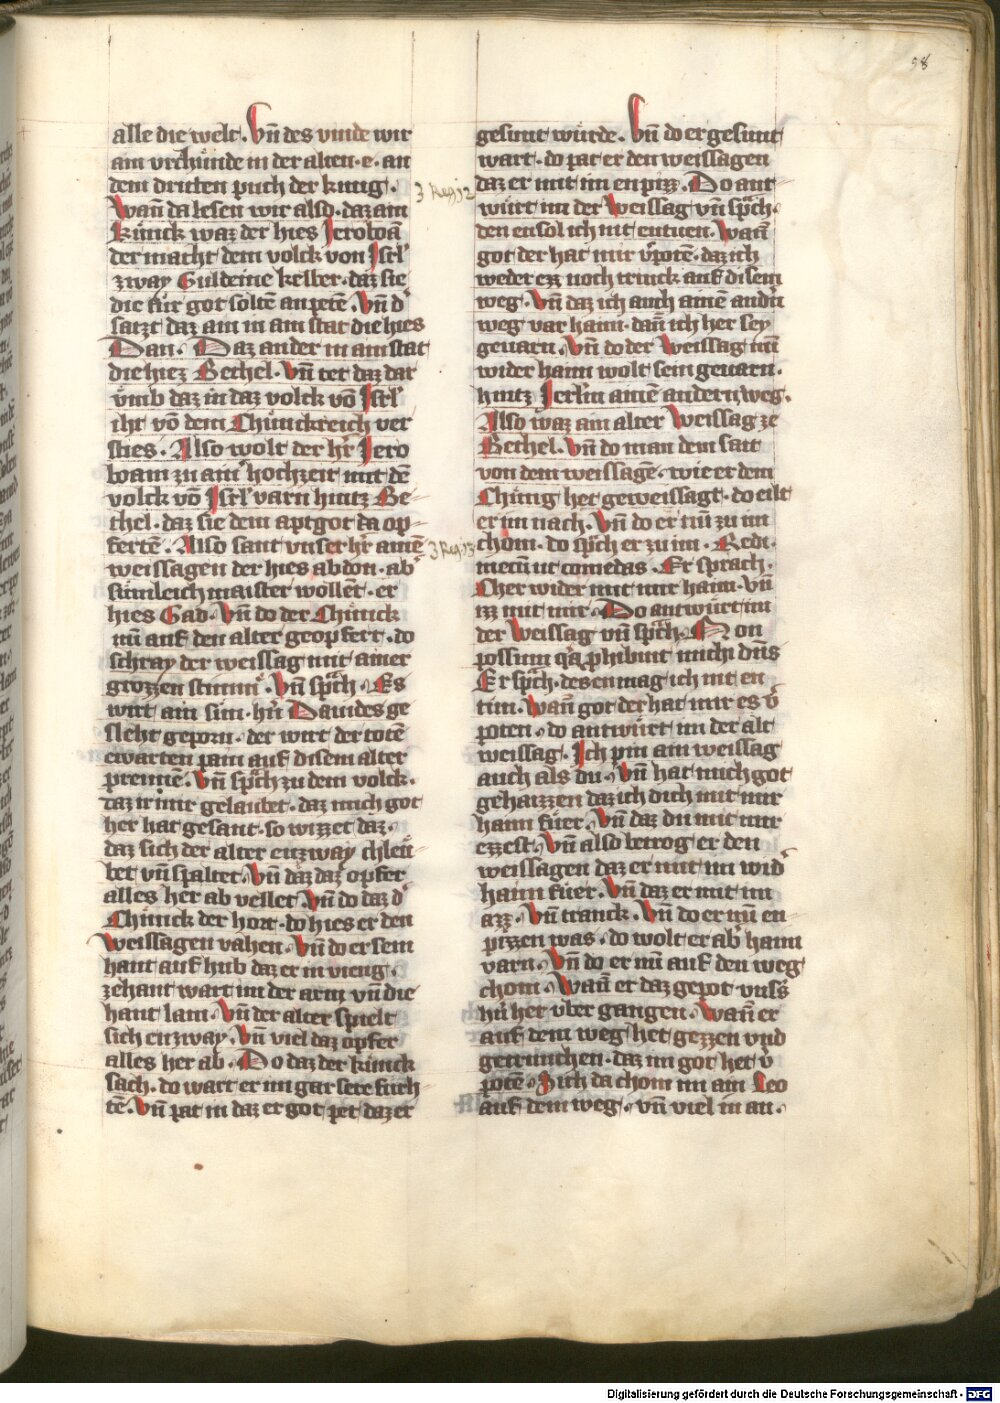 98
alle die welt. Vn̄ des vinde wir
ain vrchünde in der alten .e. an
dem dritten půch der kung.
Wan̄ da lesen wir also. daz ain
Künick waz der hies Jeroboā
der macht dem volck von Jsrl̄
zway Guldeine kelber. daz sie
die für got soltē anpetē. Vn̄ d'
satzt daz ain in ain stat die hies
Dan. Daz ander in ain stat
die hiez Bethel. Vn̄ tet daz dar
vmb daz in daz volck vō Jsrl̄
iht vō dem Chünickreich ver
sties. Also wolt der h'r Jero
boam zu ain' hochzeit mit dē
volck vō Jsrl̄ varn hintz Be
thel. daz sie dem aptgot da op
fertē. Also sant vnser h'r ainē
weissagen der hies abdon. ab'
sümleich maister wollent. er
hies Gad. Vn̄ do der Chünick
nū auf den alter geopfert. do
schray der weissag mit ainer
grozzen stimm'. Vn̄ sp̄ch. Es
wirt ain sun. h'n Dauides ge
slеht geporn. der wirt der totē
ewarten pain auf disem alter
prennē. Vn̄ sp̄ch zu dem volck.
daz ir mir gelaubet. daz mich got
her hat gesant. so wizzet daz.
daz sich der alter enzway chleü
bet vn̄ spaltet. Vn̄ daz daz opfer
alles her ab vellet. Vn̄ do daz d'
Chünick der hort. do hies er den
Weissagen vahen. Vn̄ do er sein
hant auf hub daz er in vieng.
zehant wart im der arm vn̄ die
hant lam. Vn̄ der alter spielt
sich enzway. Vn̄ viel daz opfer
alles her ab. Do daz der künick
sach. do wart er im gar sere fürch
tē. Vn̄ pat in daz er got pet daz er
3 Reg. 12
3 Reg. 13
gesunt würde. Vn̄ do er gesunt
wart. do pat er den weissagen
daz er mit im enpizz. Do ant
würt im der Weissag vn̄ sp̄ch.
den ensol ich nit entuen. Wan̄
got der hat mir v'potē. daz ich
weder ezz noch trinck auf disem
weg. Vn̄ daz ich auch ainē and'n
weg var haim. dan̄ ich her sey
geuarn. Vn̄ do der Weissag nū
wider haim wolt sein geuarn.
hintz Jerl̄m ainē andern weg.
Also waz ain alter Weissag ze
Bethel. Vn̄ do man dem sait
von dem weissagē. wie er dem
Chünig het geweissagt. do eilt
er im nach. Vn̄ do er nū zu im
chom. do sp̄ch er zu im. Redi.
mecū ut comedas. Er sprach.
Cher wider mit mir haim. Vn̄
izz mit mir. Do antwürt im
der Weissag vn̄ sp̄ch. Non
possum q̄a p̄hibuit michi dn̄s
Er sp̄ch. des en mag ich nit en
tun. Wan̄ got der hat mir es v'
poten. do antwürt im der alt
weissag. Jch pin ain weissag
auch als du. Vn̄ hat mich got
gehaizzen daz ich dich mit mir
haim füer. Vn̄ daz du mit mir
ezzest. Vn̄ also betrog er den
weissagen daz er mit im wid'
haim füer. Vn̄ daz er mit im
azz. Vn̄ tranck. Vn̄ do er nū en
pizzen was. do wolt er ab' haim
varn. Vn̄ do er nū auf den weg
chom. Wan̄ er daz gepot vnss
h'n her vber gangen. Wan̄ er
auf dem weg het gezzen vnd
getrunchen. daz im got het v'
potē. Sich da chom im ain Leo
auf dem weg. vn̄ viel in an.
Digitalisierung gefördert durch die Deutsche Forschungsgemeinschaft - DFG